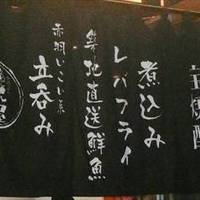 宝焼酎
煮込み
レバフライ
築地直送鮮魚
赤羽いこい系
立呑み